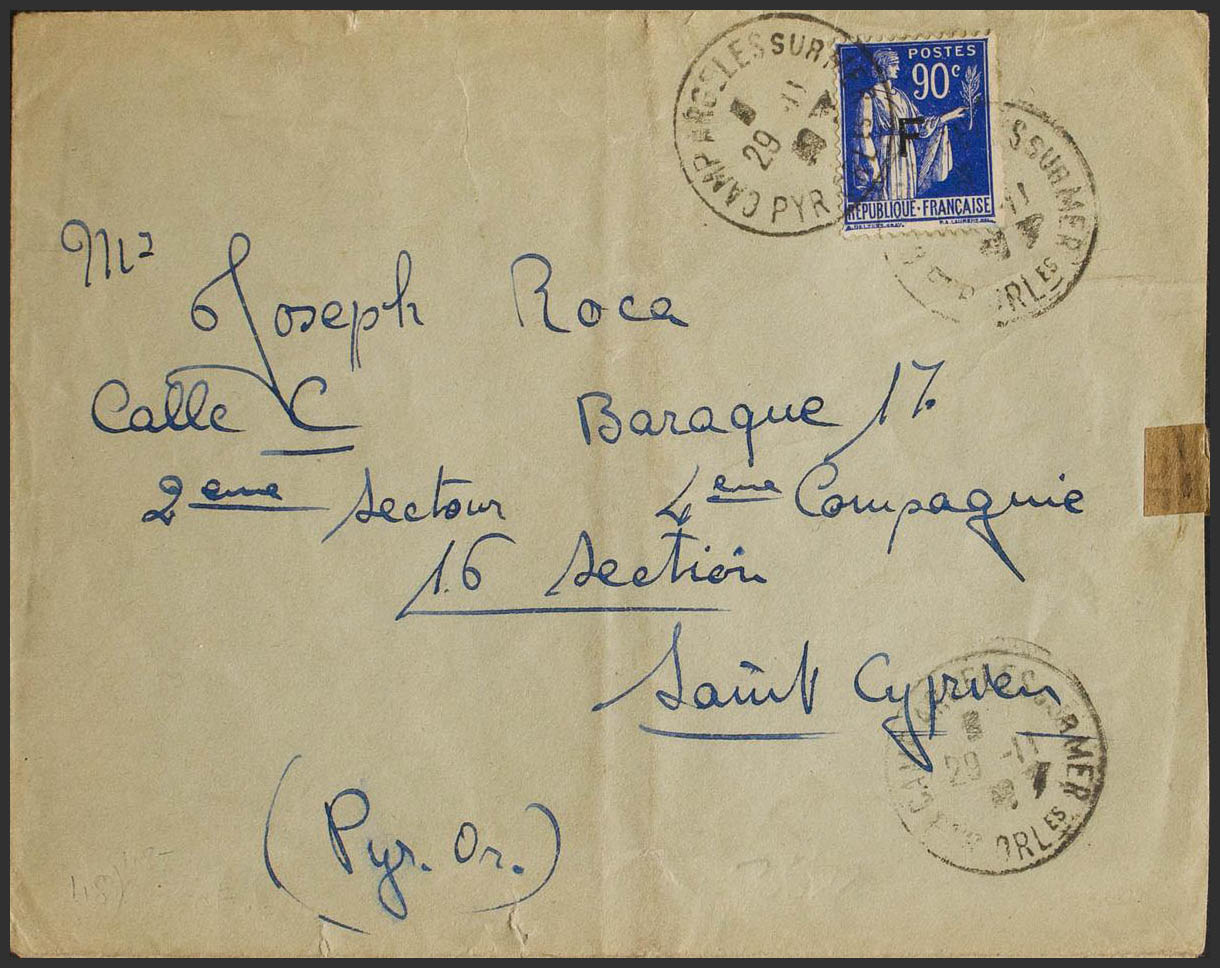 CAMP ARGELES SUR MER
29 -11
PYR
POSTES
90c
F
REPUBLIQUE·FRANÇAISE
SSUR MER
-11
ORLES
Mr Joseph Roca
Calle C Baraque 17.
2eme Secteur 4eme Compagnie
16 Section
Saint Cyprien
(Pyr. Or.)
MER
29 -11
ORLES